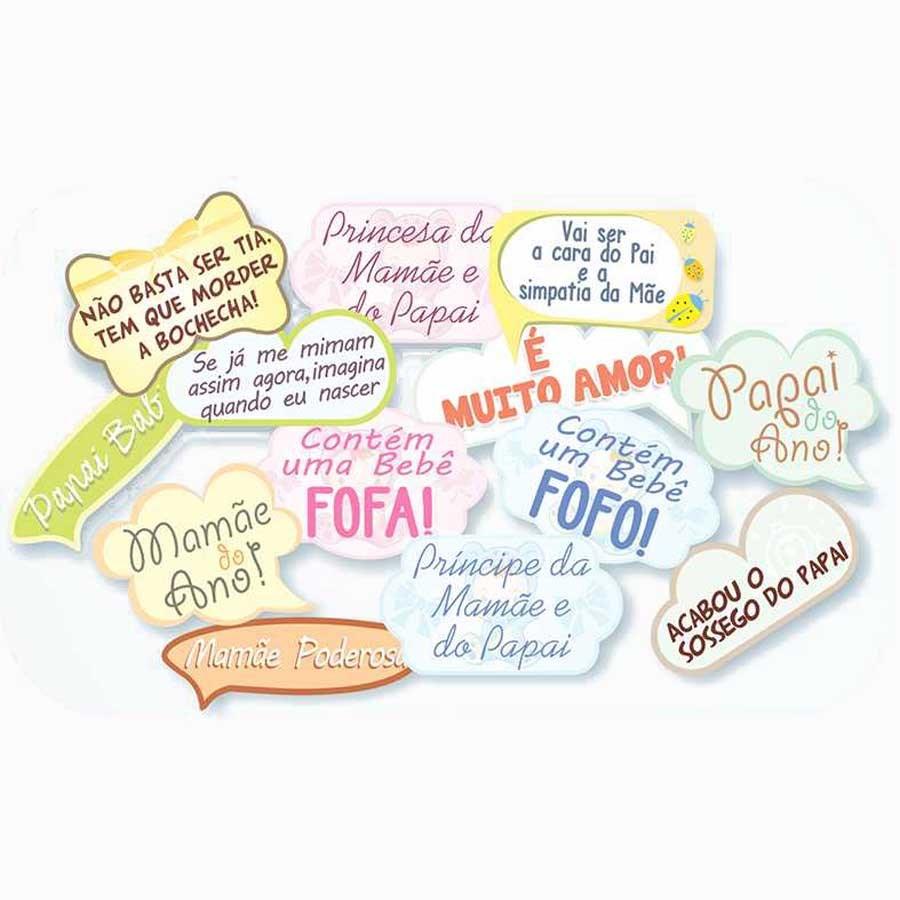 NÃO BASTA SER TIA.
TEM QUE MORDER
A BOCHECHA!
Princesa da
Mamãe e
do Papai
Vai ser
a cara do Pai
e a
simpatia da Mãe
Se já me mimam
assim agora,imagina
quando eu nascer
É
MUITO AMOR!
Papai
do
Ano!
Papai Bab
Contém
uma Bebê
FOFA!
Contém
um Bebê
FOFO!
Mamãe
do
Ano!
Príncipe da
Mamãe e
do Papai
ACABOU O
SOSSEGO DO PAPAI
Mamãe Poderosa